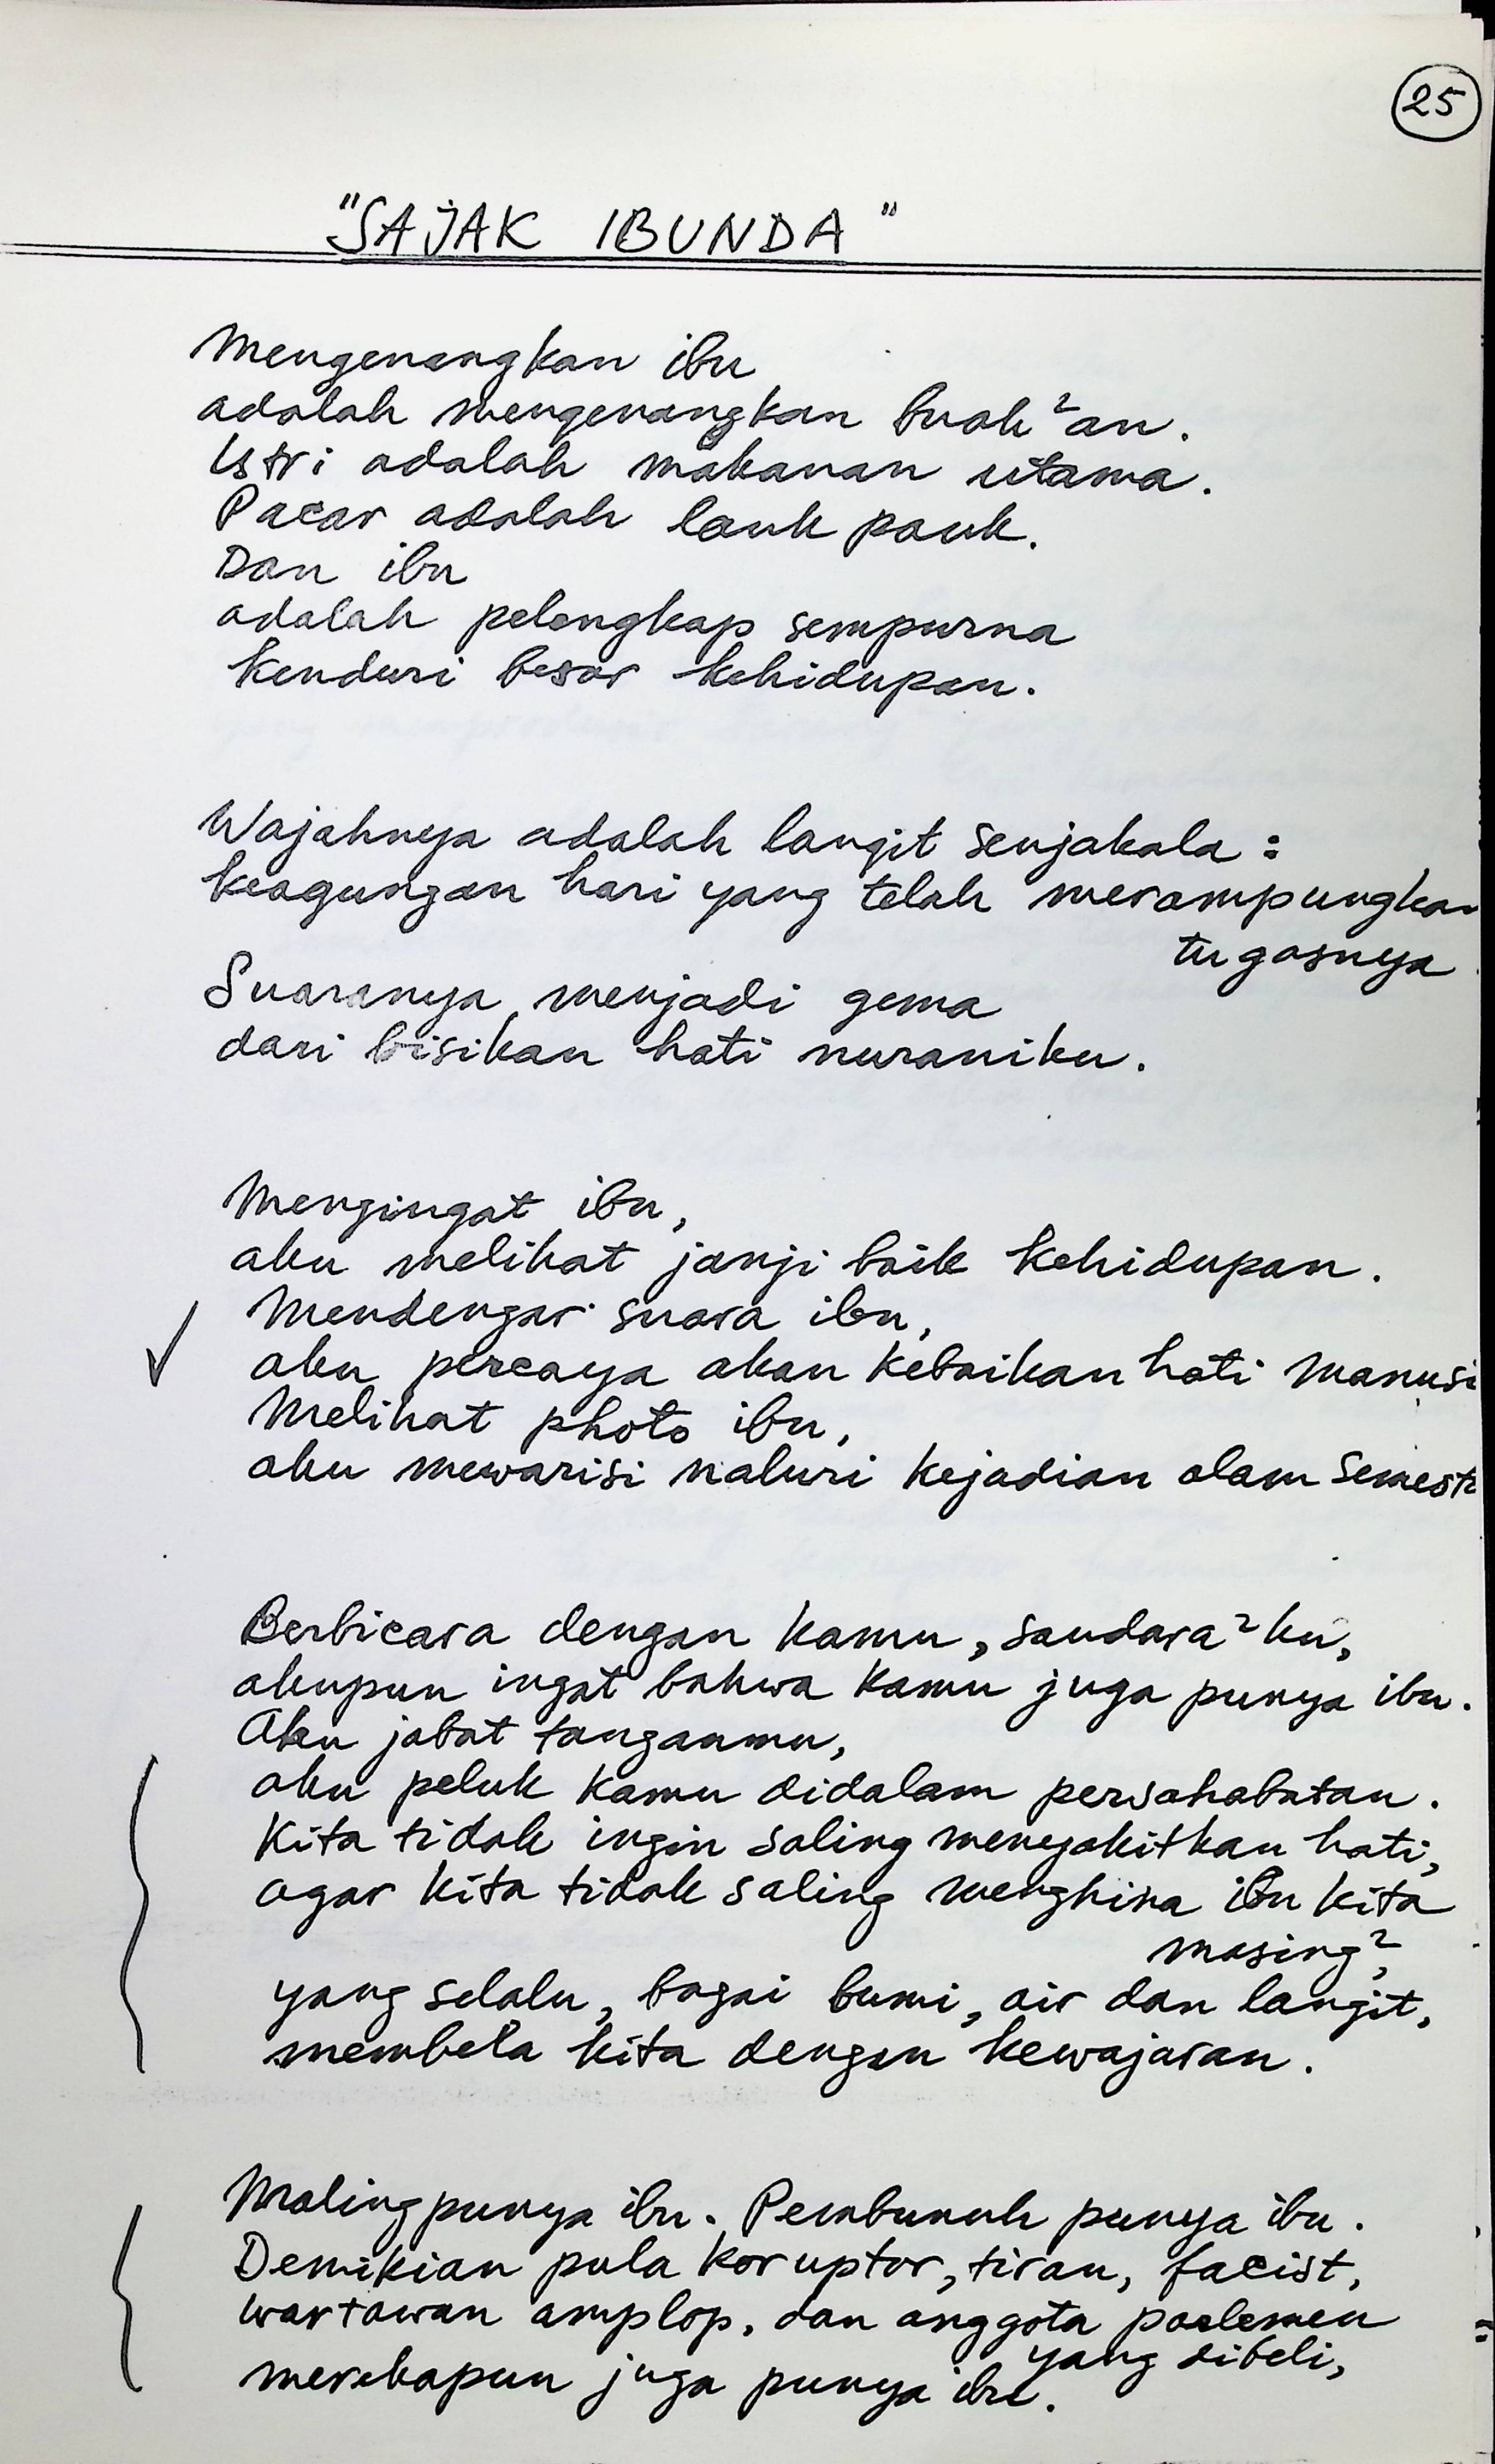 25
"SAJAK IBUNDA"
Mengenangkan ibu
adalah mengenangkan buah²an.
Istri adalah makanan utama.
Pacar adalah lauk pauk.
Dan ibu
adalah pelengkap sempurna
kenduri besar kehidupan.
Wajahnya adalah langit senjakala :
keagungan hari yang telah merampungkan
tugasnya
Suaranya menjadi gema
dari bisikan hati nuraniku.
Mengingat ibu,
aku melihat janji baik kehidupan.
Mendengar suara ibu,
aku percaya akan kebaikan hati manusi
Melihat photo ibu,
aku mewarisi naluri kejadian alam semest
Berbicara dengan kamu, saudara²ku,
akupun ingat bahwa kamu juga punya ibu.
Aku jabat tanganmu,
aku peluk kamu didalam persahabatan.
Kita tidak ingin saling menyakitkan hati,
agar kita tidak saling menghina ibu kita
masing²,
yang selalu, bagai bumi, air dan langit,
membela kita dengan kewajaran.
Maling punya ibu. Pembunuh punya ibu.
Demikian pula koruptor, tiran, facist,
wartawan amplop, dan anggota parlemen
yang dibeli,
merekapun juga punya ibu.